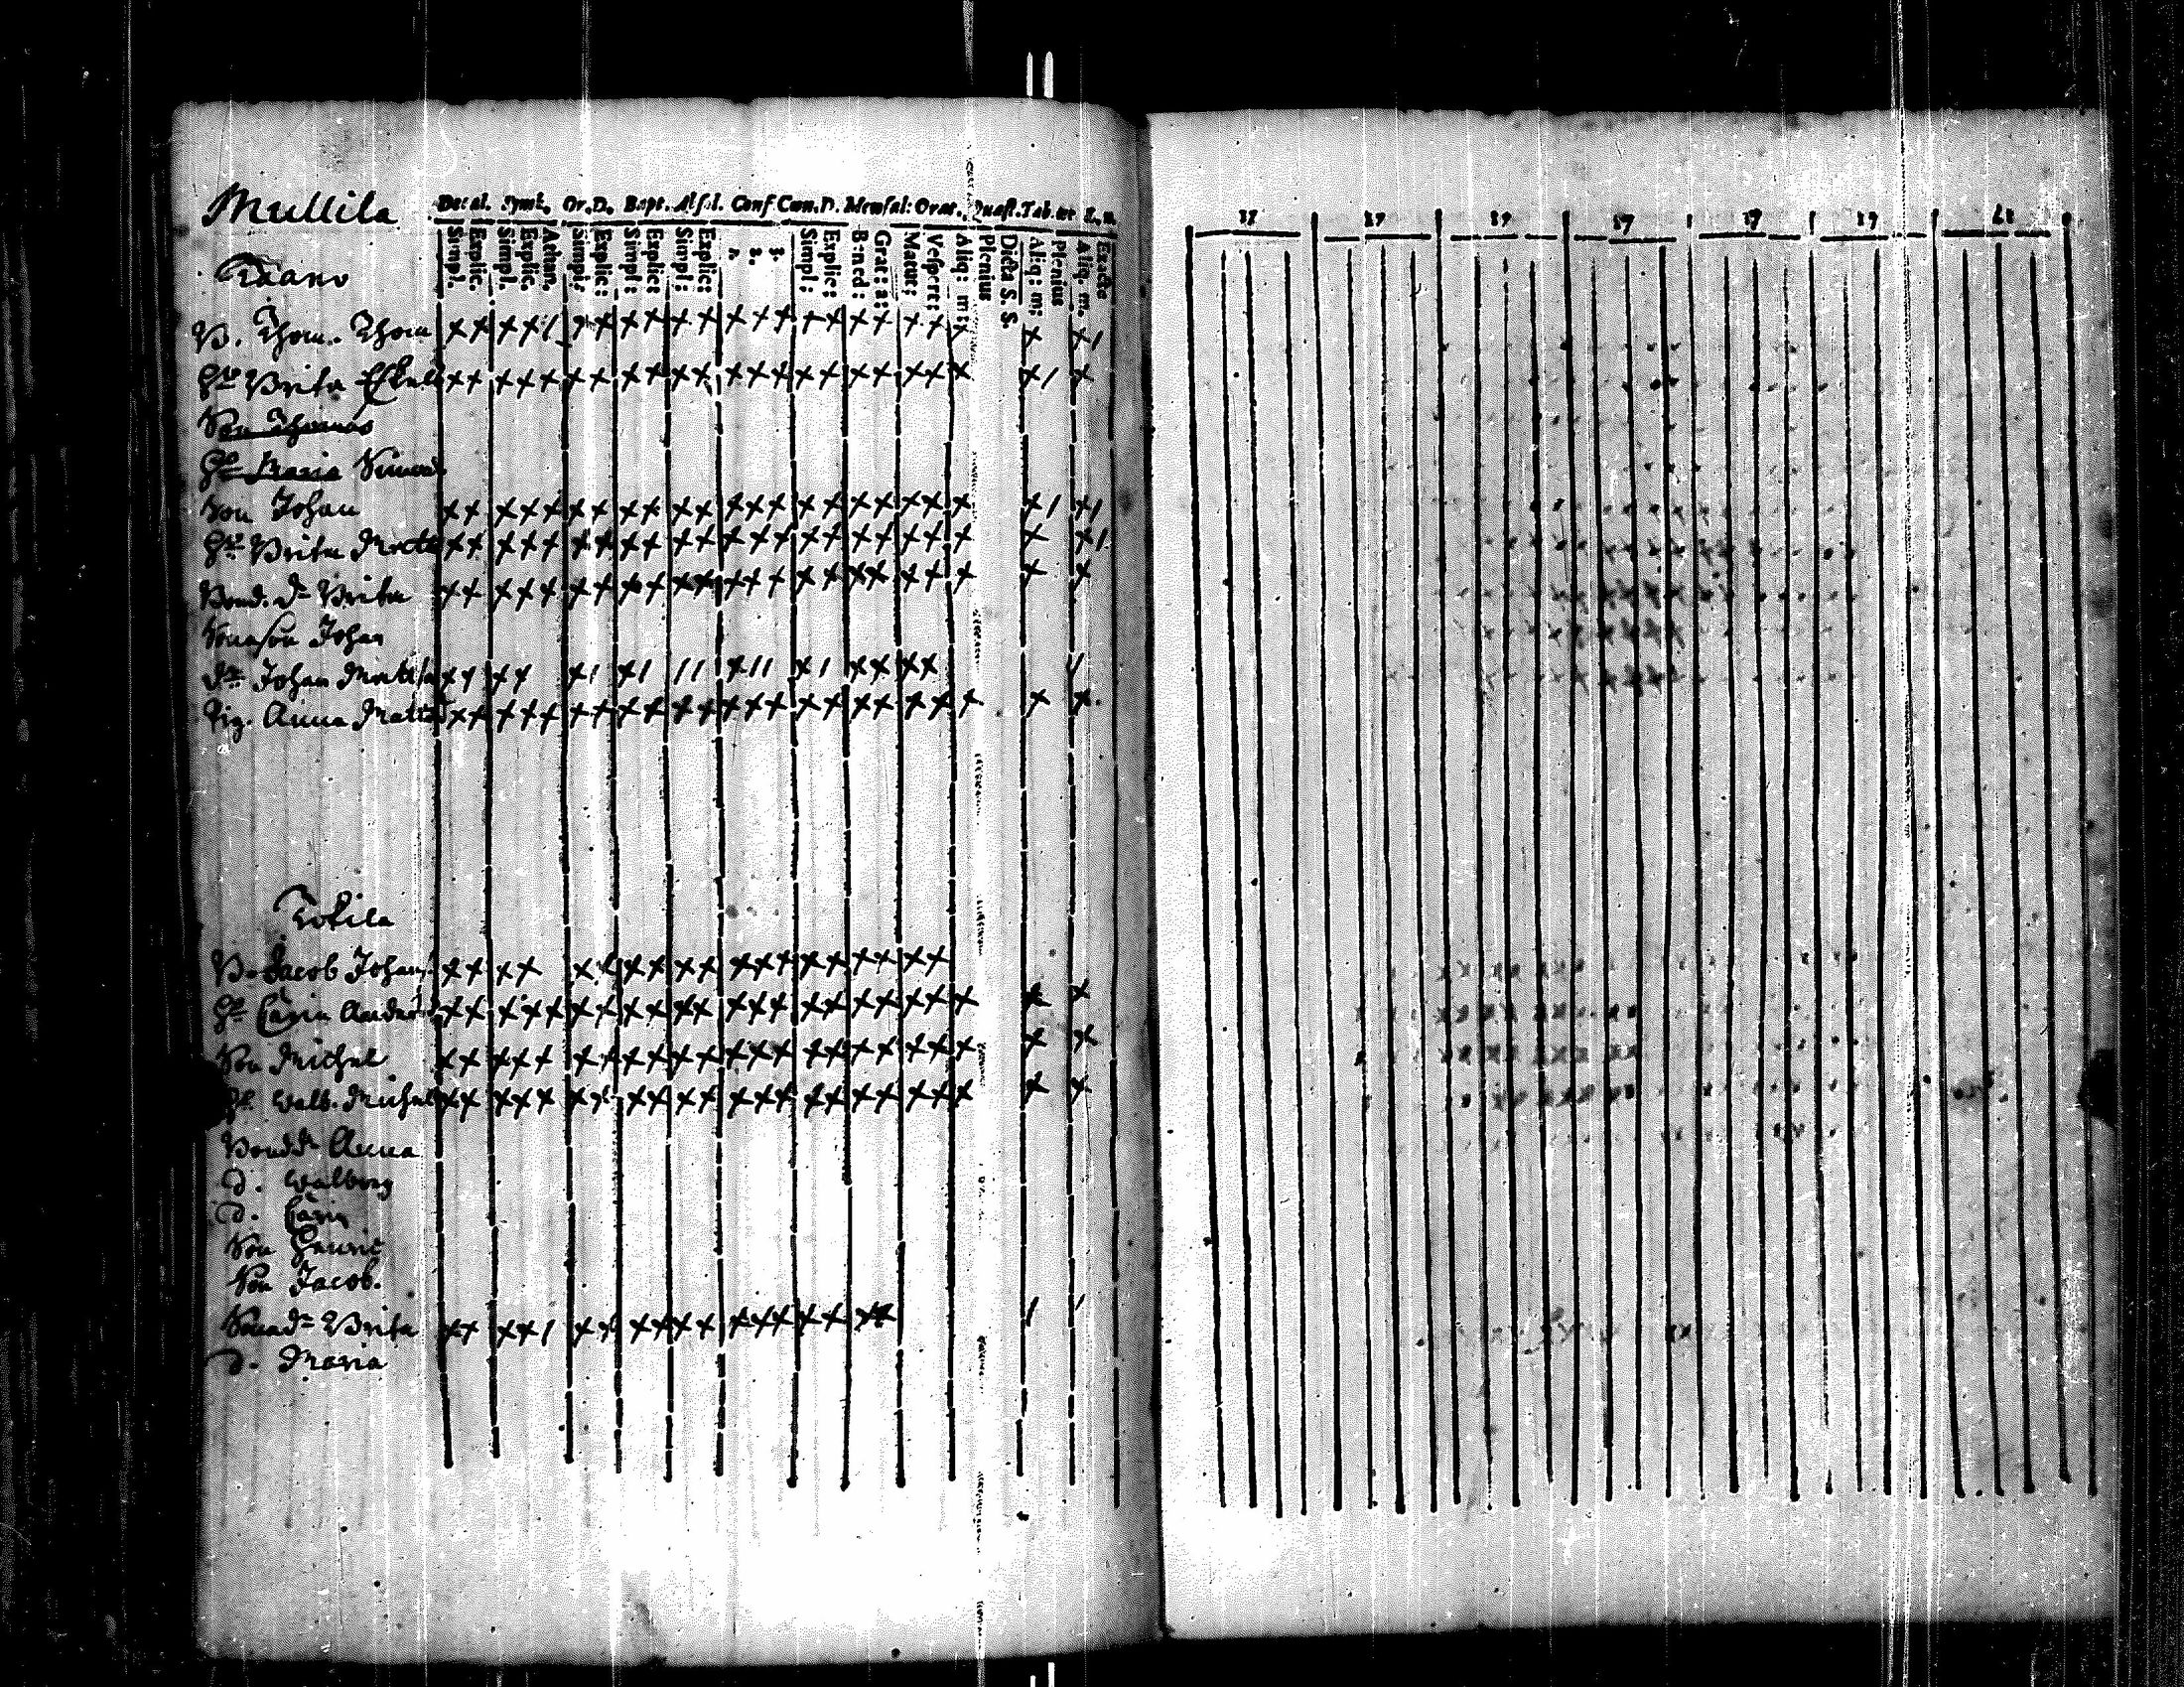 Mullila
Decal. Symb. Or. D. Bapt. Absol. Conf. Cœn. D. Mensal: Orat. Quæst. Tab. œc L. n.
Simpl. Explic. Simpl. Explic. Athan. Simpl: Explic: Simpl: Explic: Simpl: Explic: 1. 2. 3. Simpl: Explic: Bened: Grat: a: Matut: Vespert: Aliq: m: Plenius Dicta S. S. Aliq: m: Plenius Aliq. m. Exacte
B. Thom. Thom
H: Brita Eskels
Son Thomas
H: Maria Simons
Son Johan
H: Brita Matts
Bond. d: Brita
Sonason Johan
d: Johan Mattss
Pig. Anna Matts
Tokila
B. Jacob Johans
H: Carin Anders
Son Michel
H: Walb. Michel
Bondd: Anna
d. Walborg
d. Carin
Son Henric
Son Jacob.
Sonad: Brita
d. Maria
17 17 17 17 17 17 17